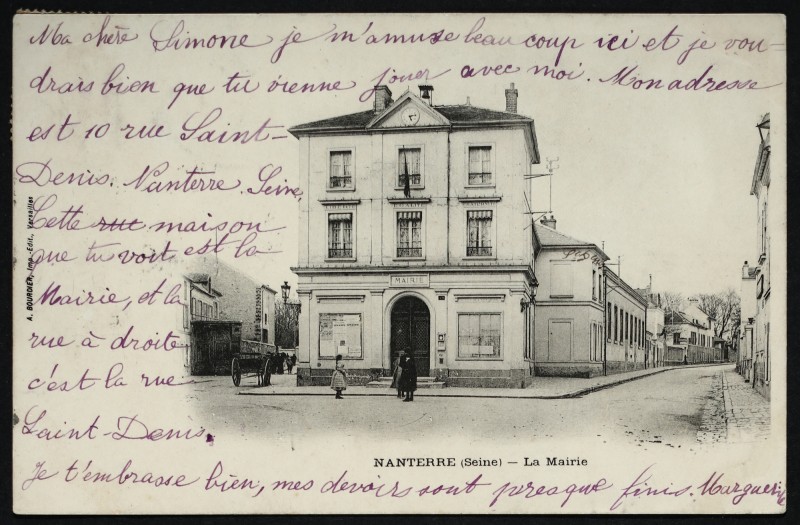 Ma chère Simone je m'amuse beaucoup ici et je vou-
drais bien que tu vienne jouer avec moi. Mon adresse
est 10 rue Saint-
Denis. Nanterre. Seine,
Cette rue maison
que tu voit est la
Mairie, et la
rue à droite
c'est la rue
Saint-Denis.
Je t'embrasse bien, mes devoirs sont presque finis. Marguerite
MAIRIE
NANTERRE (Seine) — La Mairie
A. BOURDIER, Imp.-Edit., Versailles